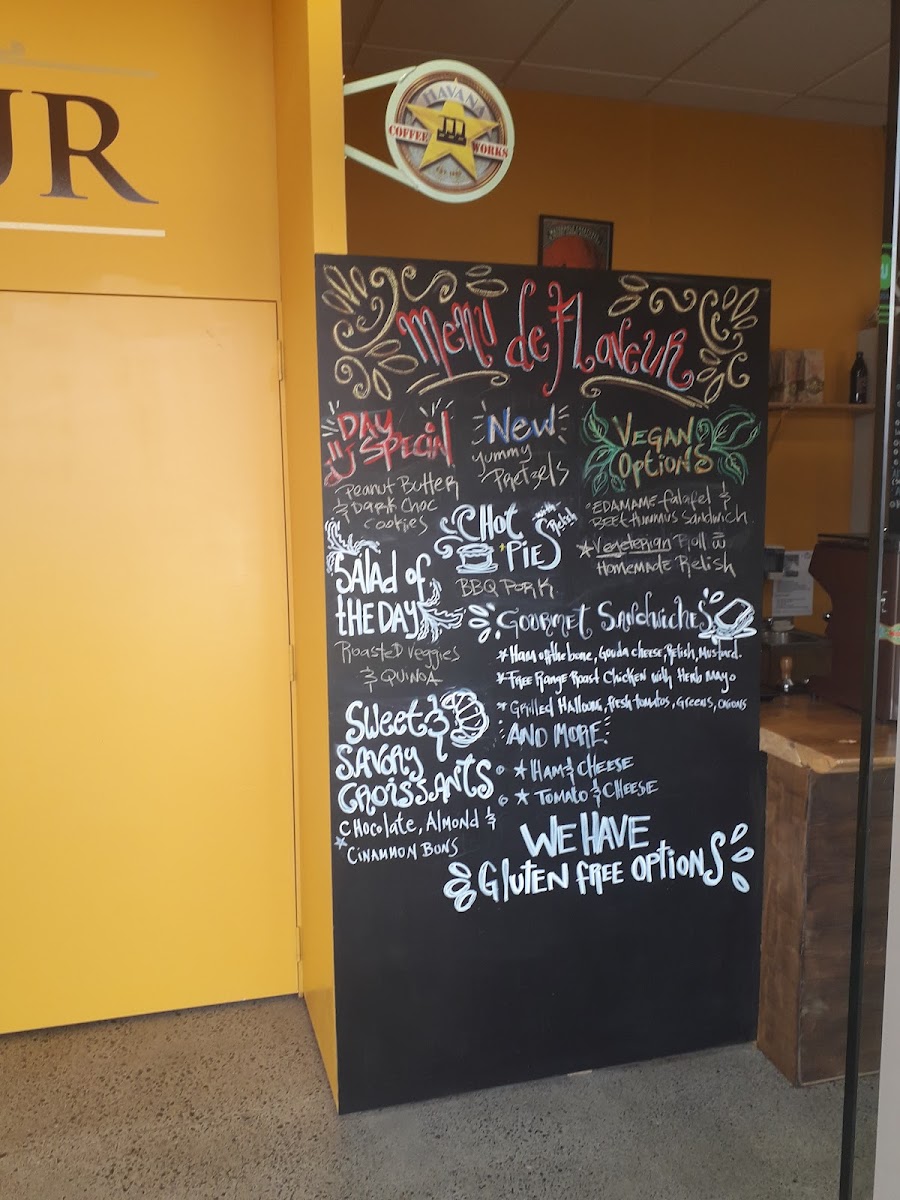 UR
HAVANA
COFFEE WORKS
Menu de Flaveur
DAY
SPECIAL
Peanut Butter
& Dark Choc
Cookies
New
Yummy
Pretzels
VEGAN
Options
EDAMAME falafel &
BEET HUMMUS Sandwich
Vegeterian Roll w
HOMEMADE Relish
HOT
PIES
with
Relish
BBQ PORK
Salad of
THE DAY
Roasted Veggies
& QUINOA
Gourmet Sandwiches
* Ham off the bone, Gouda cheese, Relish, Mustard.
* Free Range Roast Chicken with Herb Mayo
* Grilled Halloumi, fresh tomatos, Greens, Onions
AND MORE:
* HAM & CHEESE
* TOMATO & CHEESE
Sweet &
SAVORY
CROISSANTS
CHOColate, Almond &
* CINAMMON BUNS
WE HAVE
Gluten free options